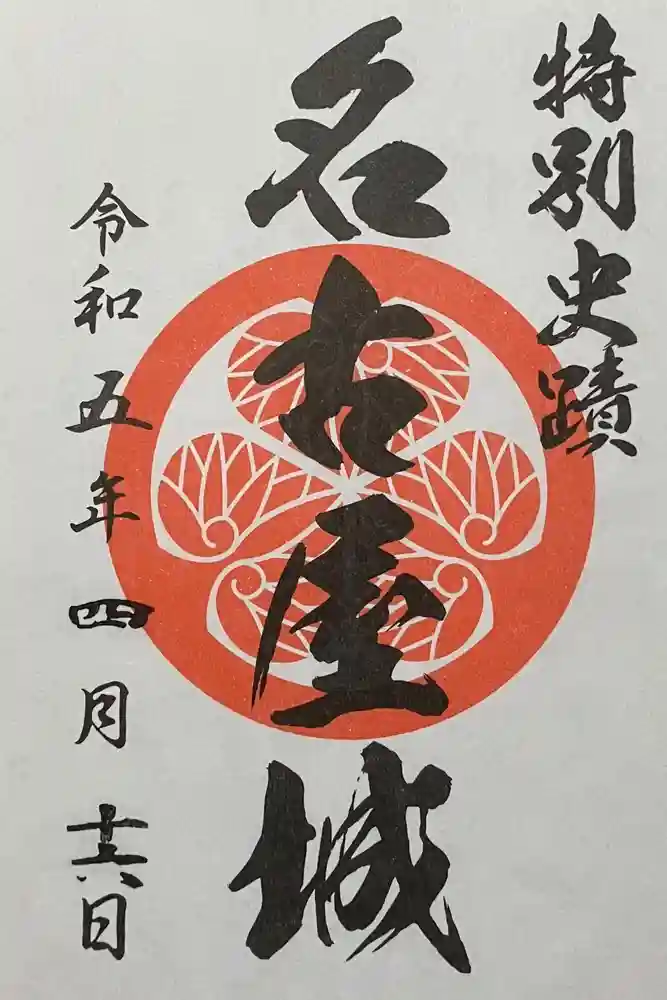 特別史蹟
名古屋城
令和五年四月十六日